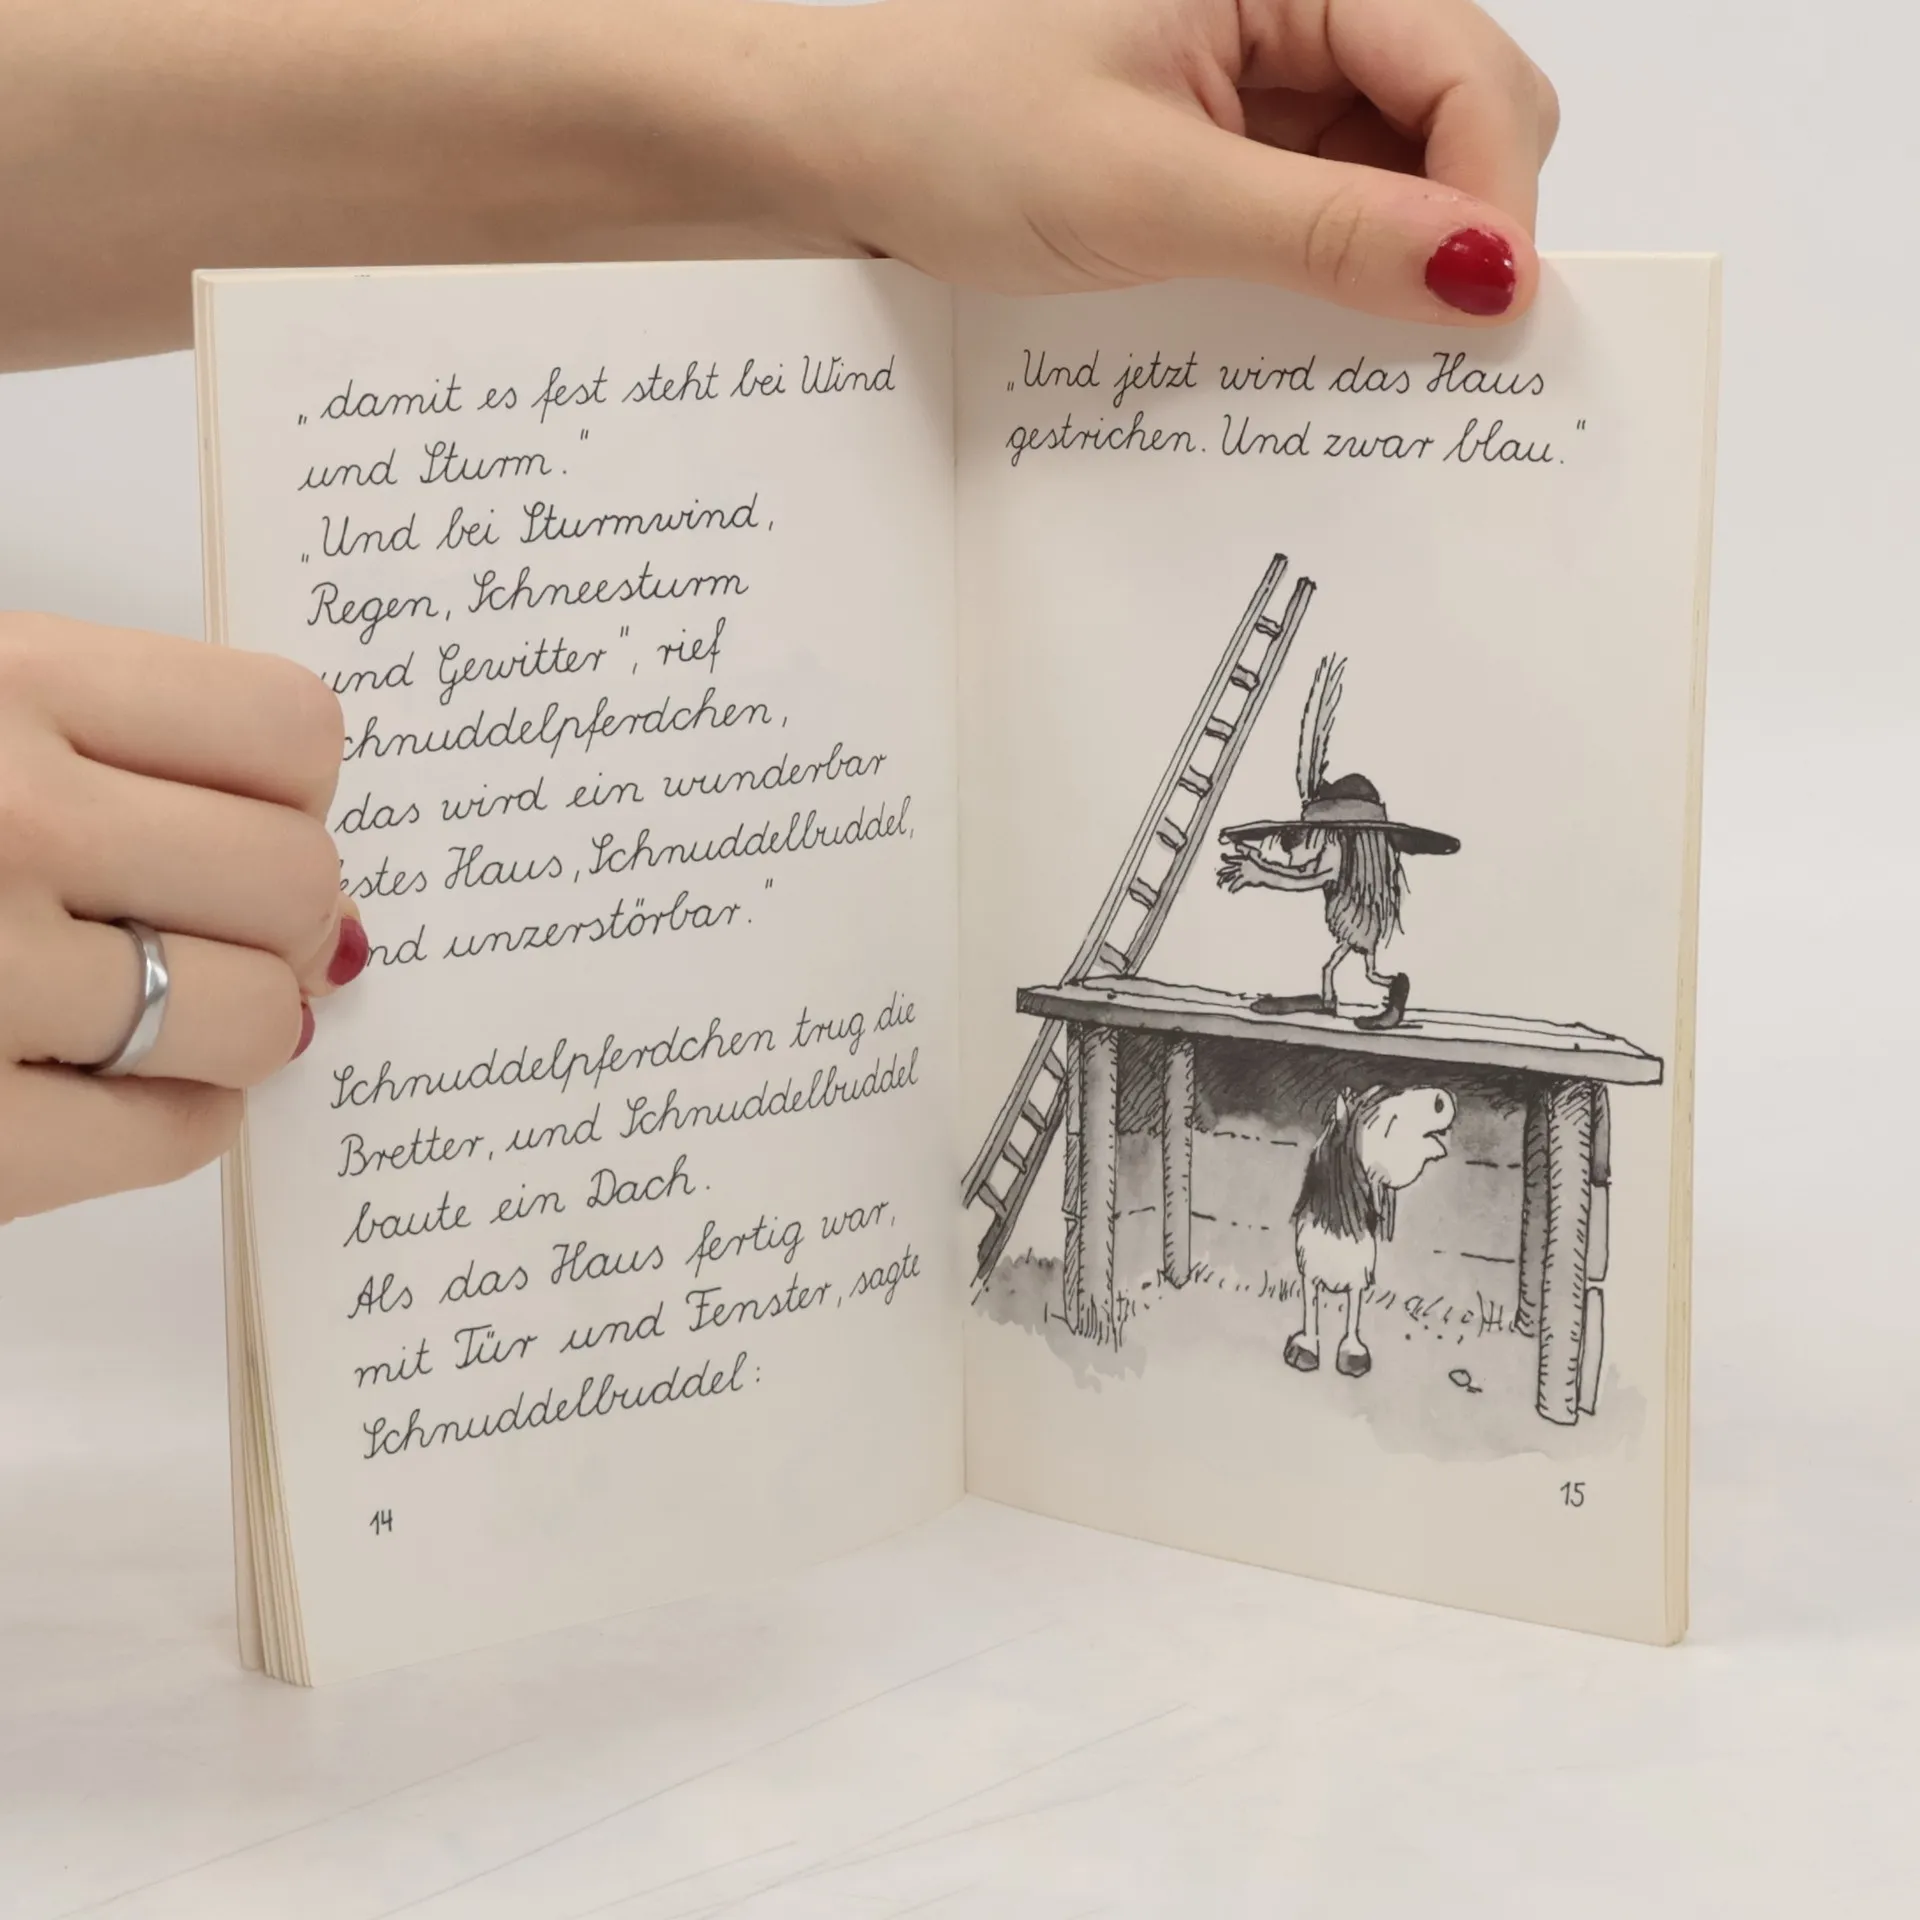 „damit es fest steht bei Wind
und Sturm."
„Und bei Sturmwind,
Regen, Schneesturm
und Gewitter", rief
chnuddelpferdchen,
das wird ein wunderbar
estes Haus, Schnuddelbuddel,
nd unzerstörbar."
Schnuddelpferdchen trug die
Bretter, und Schnuddelbuddel
baute ein Dach.
Als das Haus fertig war,
mit Tür und Fenster, sagte
Schnuddelbuddel:
14
„Und jetzt wird das Haus
gestrichen. Und zwar blau."
15